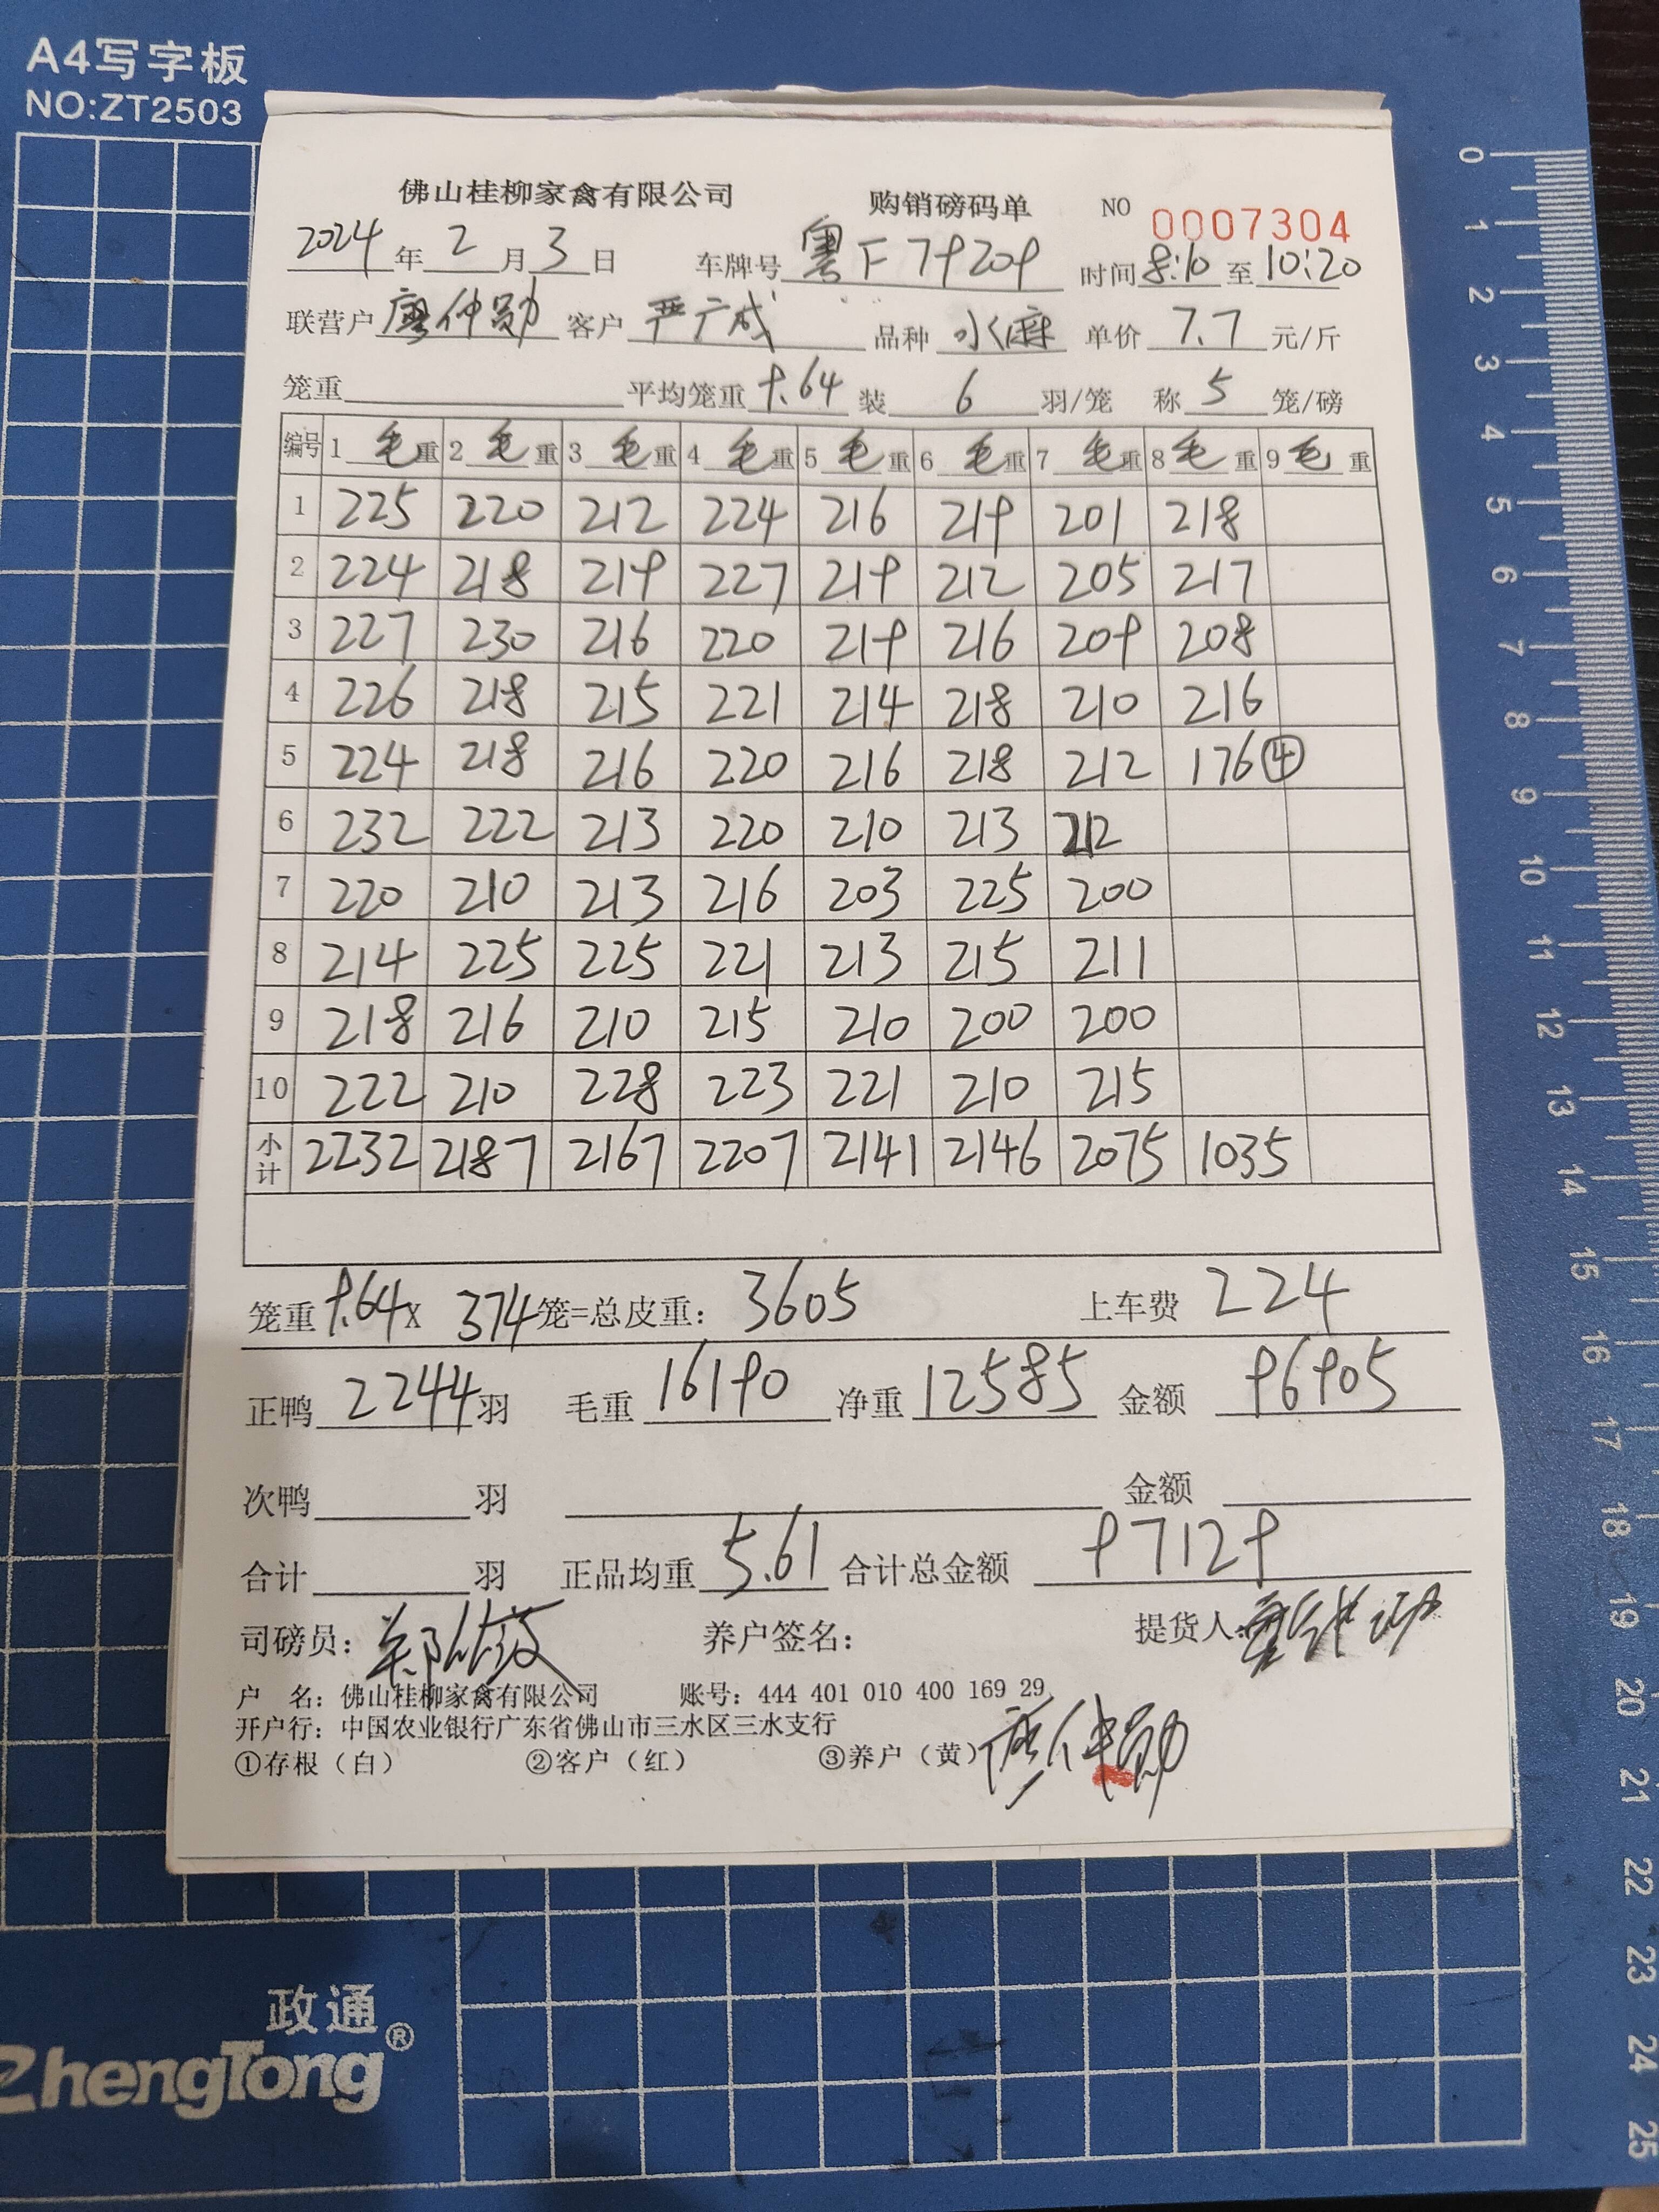 A4写字板
NO:ZT2503
佛山桂柳家禽有限公司 购销磅码单 NO 0007304
2024年2月3日 车牌号粤F79209 时间8:10至10:20
联营户廖仲勋 客户严广成 品种水麻 单价7.7元/斤
笼重 平均笼重9.64 装6羽/笼 称5笼/磅
编号 1毛重 2毛重 3毛重 4毛重 5毛重 6毛重 7毛重 8毛重 9毛重
1 225 220 212 224 216 219 201 218
2 224 218 219 227 219 212 205 217
3 227 230 216 220 219 216 209 208
4 226 218 215 221 214 218 210 216
5 224 218 216 220 216 218 212 176④
6 232 222 213 220 210 213 212
7 220 210 213 216 203 225 200
8 214 225 225 221 213 215 211
9 218 216 210 215 210 200 200
10 222 210 228 223 221 210 215
小计 2232 2187 2167 2207 2141 2146 2075 1035
笼重9.64X 374笼=总皮重: 3605 上车费 224
正鸭2244羽 毛重16190 净重12585 金额96905
次鸭 羽 金额
合计 羽 正品均重5.61 合计总金额97129
司磅员: 养户签名: 提货人:
户 名: 佛山桂柳家禽有限公司 账号: 444 401 010 400 169 29
开户行: 中国农业银行广东省佛山市三水区三水支行
①存根(白) ②客户(红) ③养户(黄) 廖仲勋
政通®
ZhengTong
0
1
2
3
4
5
6
7
8
9
10
11
12
13
14
15
16
17
18
19
20
21
22
23
24
25